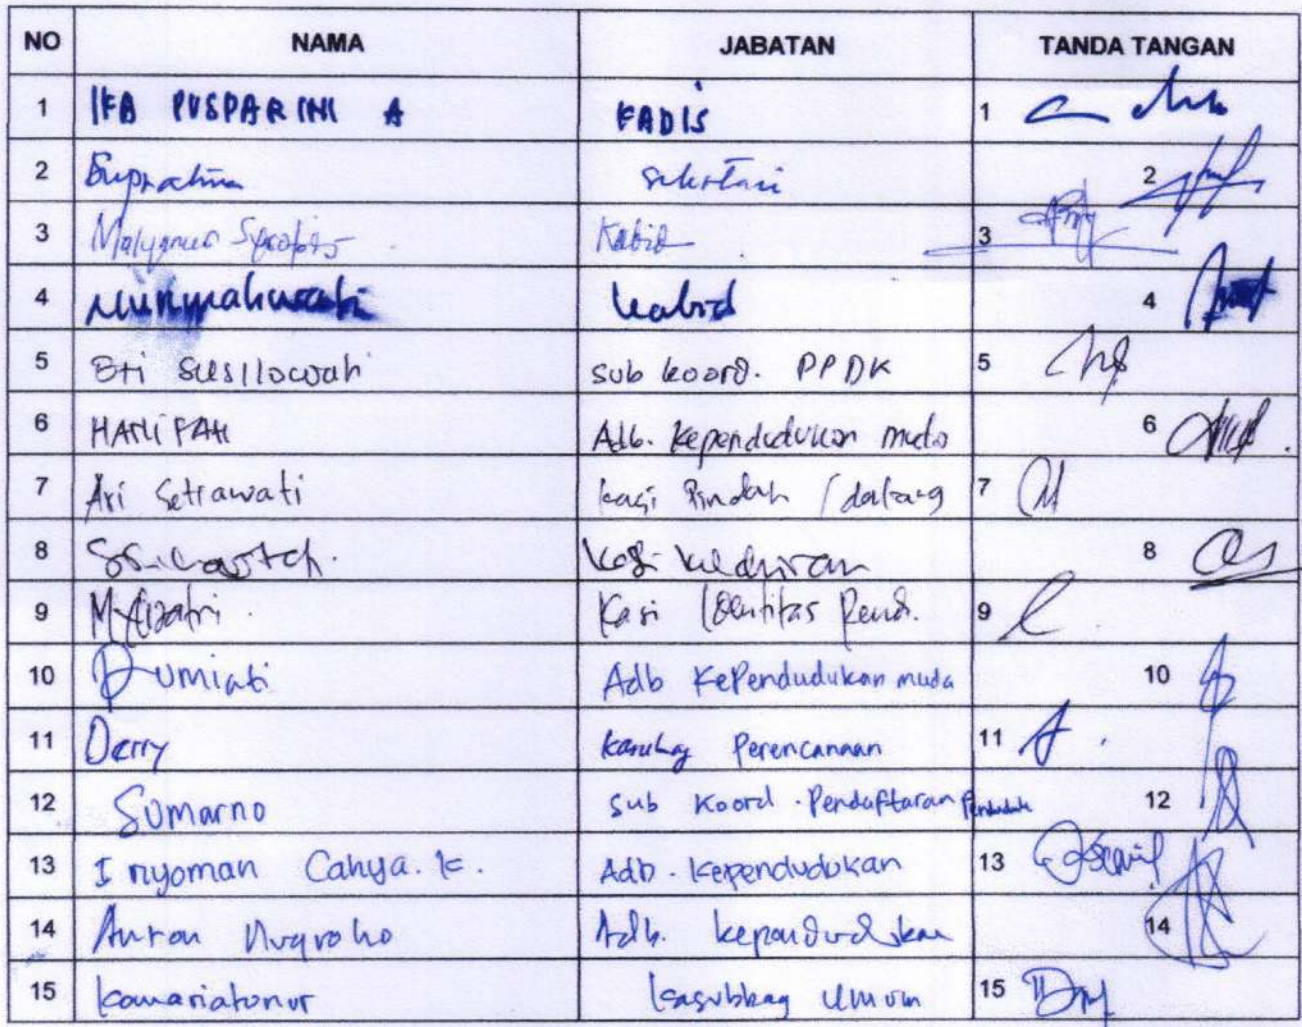 NO NAMA JABATAN TANDA TANGAN
1 IKA PUSPARINI A KADIS 1
2 Supractina sekretari 2
3 Kabid 3
4 Nunmahwati kabid 4
5 Eti Susilowati sub koord. PPDK 5
6 HANIFAH Adb. Kependudukan muda 6
7 Ari Setiawati kasi Pindah / datang 7
8 Kasi kelahiran 8
9 Kasi Identitas Pend. 9
10 Rumiati Adb Kependudukan muda 10
11 Derry Kasubag Perencanaan 11
12 Sumarno Sub Koord. Pendaftaran Penduduk 12
13 I nyoman Cahya. K. Adb. Kependudukan 13
14 Anton Nugroho Adb. kependudukan 14
15 kamariatonur kasubbag umum 15